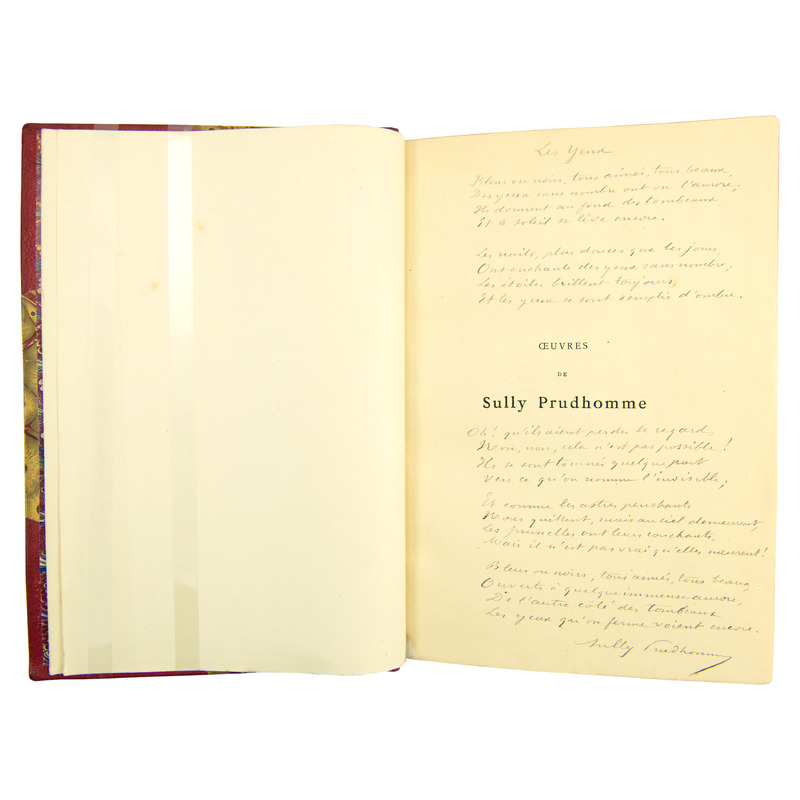 Les Yeux
Bleus ou noirs, tous aimés, tous beaux,
Des yeux sans nombre ont vu l'aurore;
Ils dorment au fond des tombeaux,
Et le soleil se lève encore.
Les nuits, plus douces que les jours,
Ont enchanté des yeux sans nombre;
Les étoiles brillent toujours,
Et les yeux se sont remplis d'ombre.
ŒUVRES
DE
Sully Prudhomme
Oh! qu'ils aient perdu le regard,
Non, non, cela n'est pas possible!
Ils se sont tournés quelque part
Vers ce qu'on nomme l'invisible;
Et comme les astres penchants
Nous quittent, mais au ciel demeurent,
Les prunelles ont leurs couchants,
Mais il n'est pas vrai qu'elles meurent!
Bleus ou noirs, tous aimés, tous beaux,
Ouverts à quelque immense aurore,
De l'autre côté des tombeaux
Les yeux qu'on ferme voient encore.
Sully Prudhomme